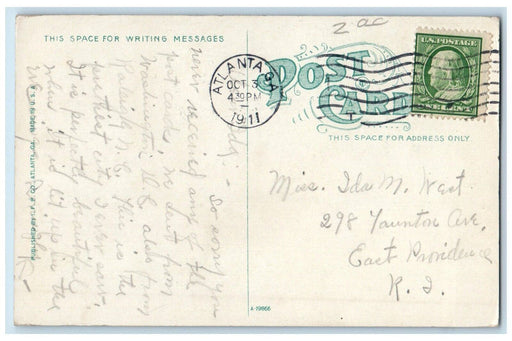 2 00
THIS SPACE FOR WRITING MESSAGES
ATLANTA, GA.
OCT 3
4-30 PM
1911
POST
CARD
U.S. POSTAGE
ONE CENT
THIS SPACE FOR ADDRESS ONLY
- So sorry you
never received any of the
post cards, we sent from
Washington D.C. also from
Raleigh N.C. This is the
city I ever saw.
It is perfectly beautiful
when it is lit up in the
Miss. Ida M. West.
298 Taunton Ave.
East Providence
R. I.
A-19866
PUBLISHED BY ATLANTA, GA. MADE IN U.S.A.